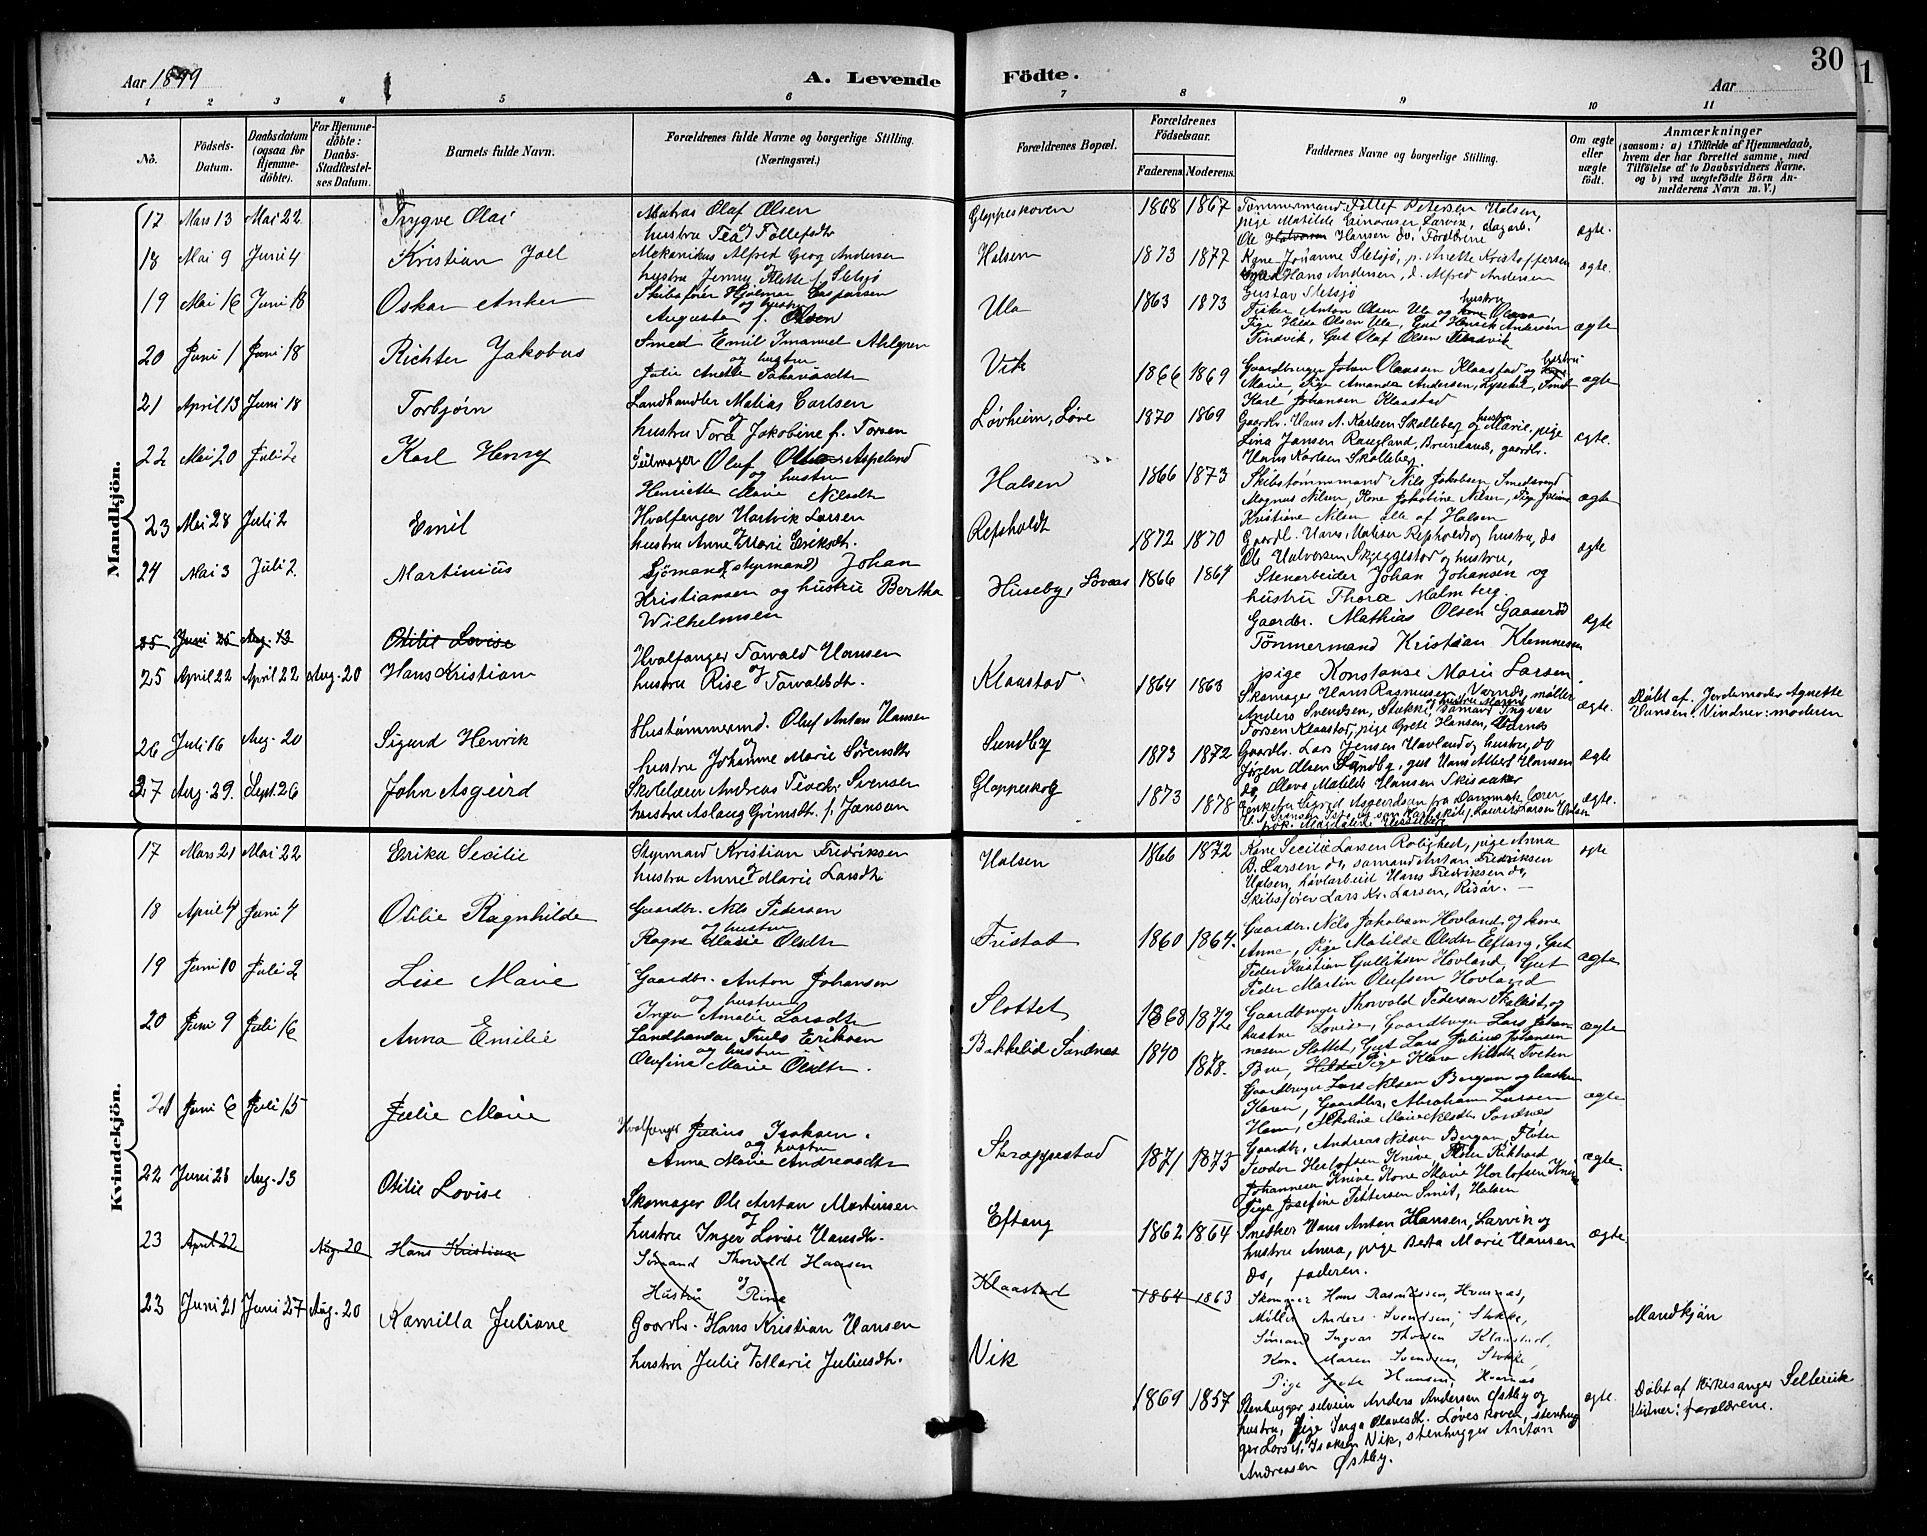 Aar 1899
A. Levende Födte.
Aar
30
1
1 2 3 4 5 6 7 8 9 10 11
No.
Födsels-Datum.
Daabsdatum (ogsaa for Hjemme-döbte).
For Hjemme-döbte: Daabs-Stadfæstel-ses Datum.
Barnets fulde Navn.
Forældrenes fulde Navne og borgerlige Stilling. (Næringsvei.)
Forældrenes Bopæl.
Forældrenes Födselsaar.
Faderens. Moderens.
Faddernes Navne og borgerlige Stilling.
Om ægte eller uægte födt.
Anmærkninger
(saasom: a) i Tilfælde af Hjemmedaab, hvem der har forrettet samme, med Tilföielse af to Daabsvidners Navne, og b) ved uægtefödte Börn An-melderens Navn m. V.)
Mandkjön.
17 Mars 13 Mai 22 Trygve Olai
Matros Olaf Olsen
hustru Tea Tollefsdtr
Gloppeskoven 1868 1867
Tømmermand Tollef Petersen Halsen,
pige Matilde Einarsen, Larvik, dagarb.
Ole Halvorsen Hansen do. Forældrene
ægte.
18 Mai 9 Juni 4 Kristian Joel
Mekanikus Alfred Georg Andersen
hustru Jenny Alette f. Stelsjø
Halsen 1873 1877
Kone Johanne Stelsjø, p. Anette Kristoffersen
Hans Andersen, d. Alfred Andersen
Gustav Stelsjø
ægte.
19 Mai 16 Juni 18 Oskar Anker
Skibsfører Hjalmar Caspersen
og hustru
Augusta f. Olsen
Ula 1863 1873
Fisker Anton Olsen Ula og hustru Olava,
Pige Hilda Olsen Ula, Gut Henrik Andersen
Findvik, Gut Olaf Olsen Findvik
ægte
20 Juni 1 Juni 18 Richter Jakobus
Smed Emil Imanuel Ahlgren
og hustru
Julie Anette
Vik 1866 1869
Gaardbruger Johan Olaussen Klaastad og hustru
Marie, Pige Amanda Andersen, Lysebil,
Karl Johansen Klaastad
ægte
21 April 13 Juni 18 Torbjørn
Landhandler Matias Carlsen
og
hustru Tora Jakobine f. Torsen
Løvheim, Løve 1870 1869
Gaardbr. Hans A. Karlsen Skalleberg og hustru Marie, pige
Lina Jansen Raugland, Brunlanæs, gaardbr.
Hans Karlsen Skalleberg.
ægte.
22 Mai 20 Juli 2 Karl Henry
Oluf Olsen Aspelund
og hustru
Henriette Marie Nilsdtr
Halsen 1866 1873
Skibstømmermand Nils Jakobsen Smedsrud
Magnus Nilsen, Kone Jakobine Nilsen, Pige
Kristiane Nilsen alle af Halsen
ægte
23 Mai 28 Juli 2 Emil
Hvalfanger Hartvik Larsen
hustru Anne Marie Eriksdtr.
Repsholdt 1872 1870
Gaardbr. Hans Matisen Repholdt og hustru, do
Ole Halvorsen Skjeggestad og hustru,
ægte
24 Mai 3 Juli 2 Martinius
Sjömand (styrmand) Johan
Kristiansen og hustru Bertha
Wilhelmsen
Huseby, Løvaas 1866 1867
Stenarbeider Johan Johansen og
hustru Thora Malmberg.
Gaardbr. Mathias Olsen Gaaserød
Tömmermand Kristian Klemmesen
pige Konstanse Marie Larsen.
ægte
25 Juni 25 Aug. 13 Otilie Lovise
25 April 22 April 22 Aug. 20 Hans Kristian
Hvalfanger Torvald Hansen
og
hustru Rise Torvaldsdtr.
Klaastad 1864 1863
Skomager Hans Rasmusen, Varnæs, møller
Anders Svendsen, Stokke, og hustru Maren, sømand Ingvar
Torsen Klaastad, pige Grete Hansen, Varnæs
ægte.
Døbt af Jordemoder Agnette
Hansen. Vindner: moderen
26 Juli 16 Aug. 20 Sigurd Henrik
Hustømmermd. Oluf Anton Hansen
og
hustru Johanne Marie Sørensdtr
Sundby 1873 1872
Gaardbr. Lars Jensen Havland og hustru, do
Jørgen Olsen Sundby, gut Hans Albert Hansen
do, Olava Matilde Hansen Skisaaker
ægte
27 Aug. 29. Sept. 26 John Asgeird
Skolelærer Andreas Teodor Svensen
hustru Aslaug Grimsdt. f. Janson
Gloppeskog 1873 1878
Enkefru Sigrid Asgeirdson fra Danmark, lærer
ægte.
Kvindekjön.
17 Mars 21 Mai 22 Erika Secilie
Styrmand Kristian Fredriksen
og
hustru Anne Marie Larsdtr
Halsen 1866 1872
Kone Secilie Larsen Rolighed, pige Anna
B. Larsen do, sømand Anton Fredriksen
Halsen, høvlarbeid Hans Fredriksen do,
Skibsfører Lars Kr. Larsen, Risør. —
ægte
18 April 4 Juni 4 Otilie Ragnhilde
Gaardbr. Nils Pedersen
og hustru
Ragna Marie Olsdtr
Tristat 1860 1864.
Gaardbr. Nils Jakobsen Hovland og kone
Anne, Pige Matilde Olsdtr Eftang, Gut
Peder Kristian Gulliksen Hovland, Gut
Peder Martin Olufsen Hovland
ægte
19 Juni 10 Juli 2 Lise Marie
Gaardbr. Anton Johansen
og hustru
Inga Amalie Larsdtr
Slottet 1868 1872
Gaardbruger Thorvald Pedersen Skalist og
hustru Lovise, Gaardbruger Lars Johan-
nesen Slottet, Gut Lars Julius Johansen
Bue, Pige Klara Nilsdtr Tveten
ægte
20 Juni 9 Juli 16 Anna Emilie
Landhandler Truls Eriksen
og hustru
Olufina Marie Olsdtr.
Bakkelid Sandnæs 1840 1878.
Gaardbruger Lars Nilsen Bergan og hustru
Karen, Gaardbr. Abraham Larsen
Hem, Nikoline Marie Nilsdtr Sandnæs
ægte
21 Juni 6 Juli 15 Julie Marie
Hvalfanger Julius Isaksen.
og hustru
Anna Marie Andreasdtr
Skræppestad 1871 1873
Gaardbr. Andreas Nilsen Bergan, Fløter
Teodor Herlofsen Knive, Fløter Rikhard
Johannesen Knive, Kone Marie Herlofsen Knive
Pige Josefine Pettersen Smit, Halsen
ægte.
22 Juni 28 Aug. 13 Otilie Lovise
Skomager Ole Anton Martinsen
og
hustru Inger Lovise Hansdtr.
Eftang 1862 1864
Snedker Hans Anton Hansen, Larvik og
hustru Anna, pige Berta Marie Hansen
do, faderen.
ægte
23 April 22 Aug. 20 Hans Kristian
Sømand Thorvald Hansen
og
Hustru Rine
Klaastad 1864 1863
Skomager Hans Rasmussen, Hvarnæs,
Møller Anders Svendsen, Stokke,
Sømand Ingvar Thorsen Klaastad,
Kone Maren Svendsen, Stokke,
Pige Grete Hansen, Hvarnæs
Mandkjön
23 Juni 21 Juni 27 Aug. 20 Kamilla Juliane
Gaardbr. Hans Kristian Hansen
og
hustru Julie Marie Juliusdtr.
Vik 1869 1857
Stenhugger Anders Andersen Østby og
hustru, Pige Inga Olavesdt. Løveskoven, stenhug
ger Lars A. Isaksen Vik, stenhugger Anton
Andreasen Østby.
ægte.
Døbt af Kirkesanger Seltevik
Vidner: forældrene.